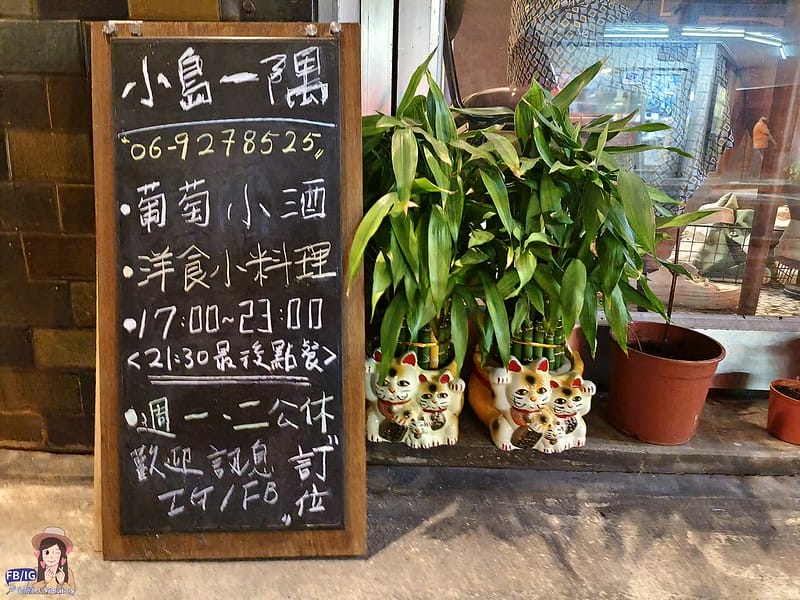 小島一隅
"06-9278525"
•葡萄小酒
•洋食小料理
•17:00~23:00
<21:30最後點餐>
•週一、二公休
歡迎訊息"訂位"
IG/FB
FB/IG